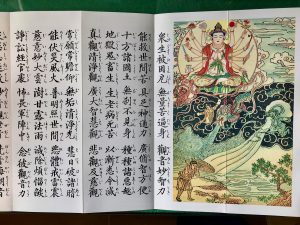 眾生被困厄 無量苦遍身 觀音妙智力
能救世間苦 具足神通力 廣修智方便
十方諸國土 無剎不現身 種種諸惡趣
地獄鬼畜生 生老病死苦 以漸悉令滅
真觀清淨觀 廣大智慧觀 悲觀及慈觀
常願常瞻仰 無垢清淨光 慧日破諸暗
能伏災風火 普明照世間 悲體戒雷震
慈意妙大雲 澍甘露法雨 滅除煩惱燄
諍訟經官處 怖畏軍陣中 念彼觀音力